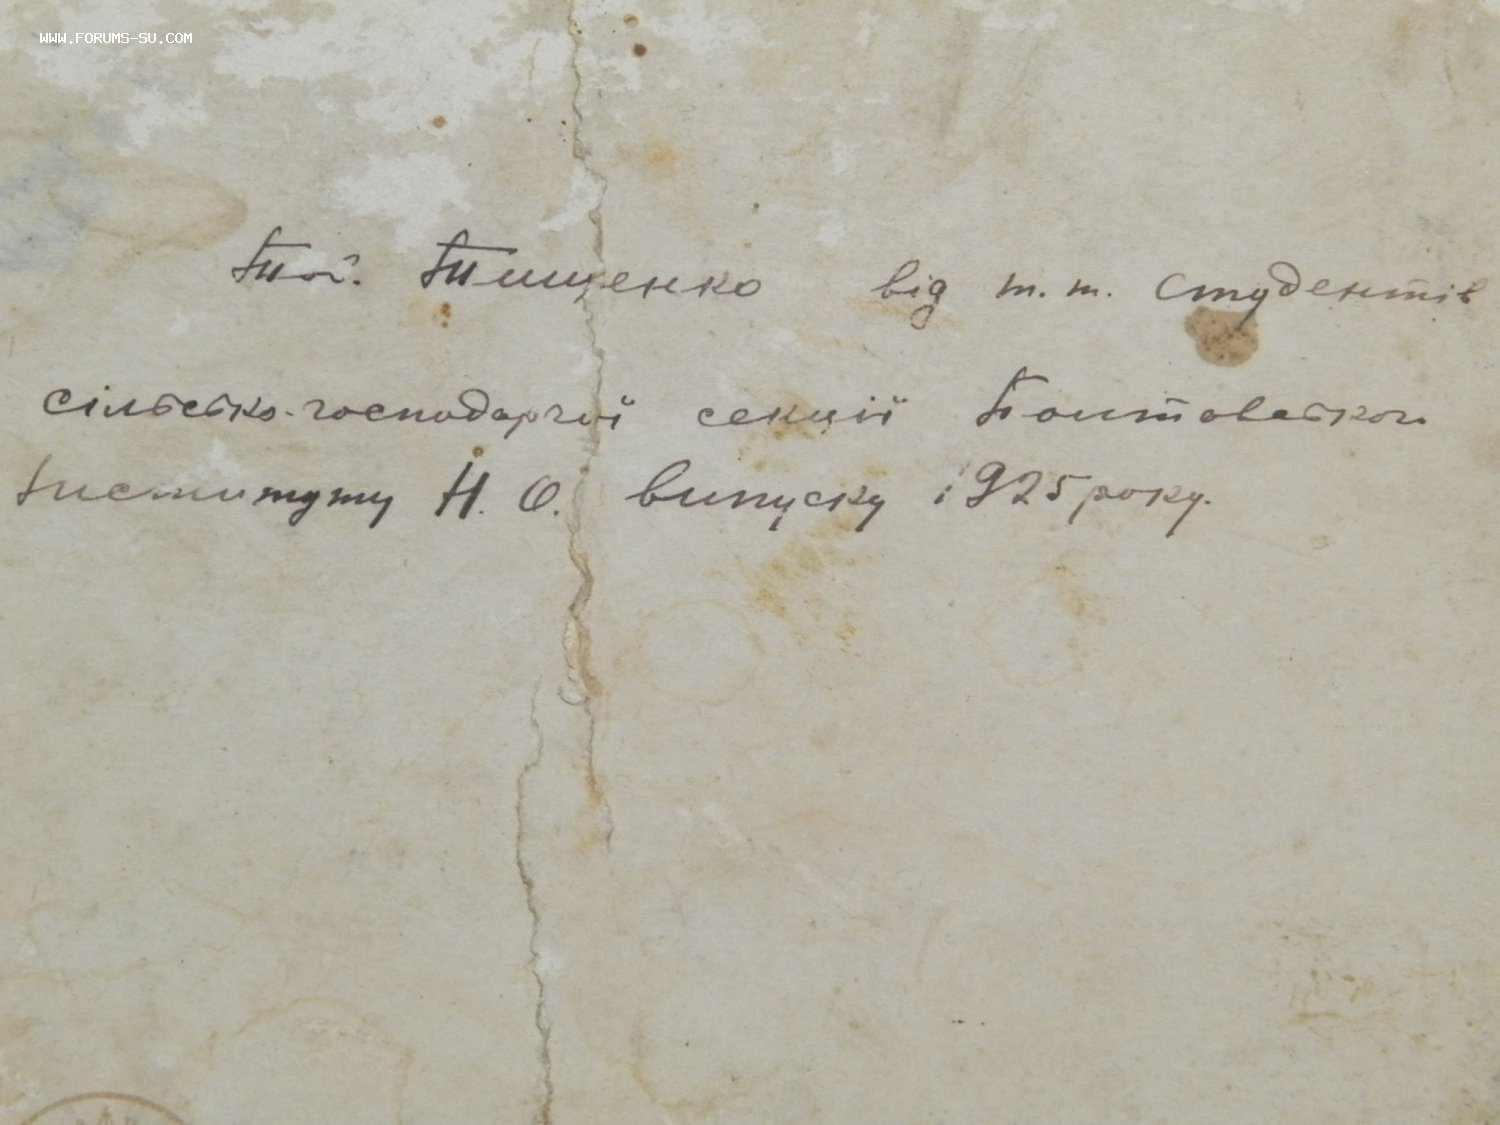 WWW.FORUMS-SU.COM
Тов. Тищенко від т.т. студентів
сільсько-господарчої секції Полтавського
Інституту Н. О. випуску 1925 року.